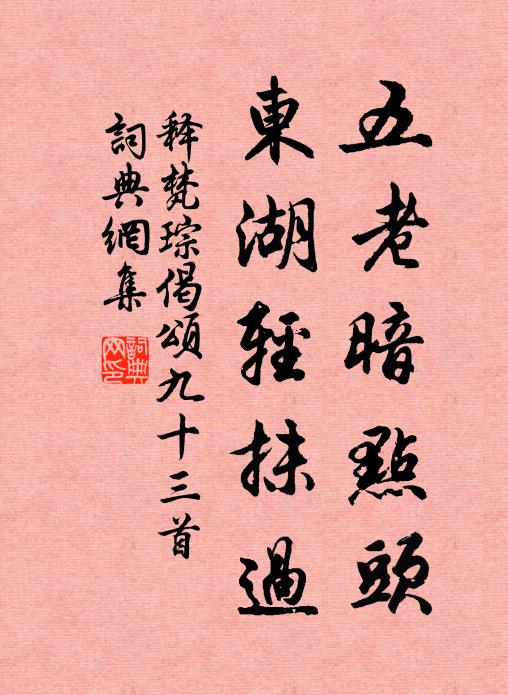 五老暗點頭
東湖輕抹過
释梵琮偈頌九十三首
詞典網集
詞典網印